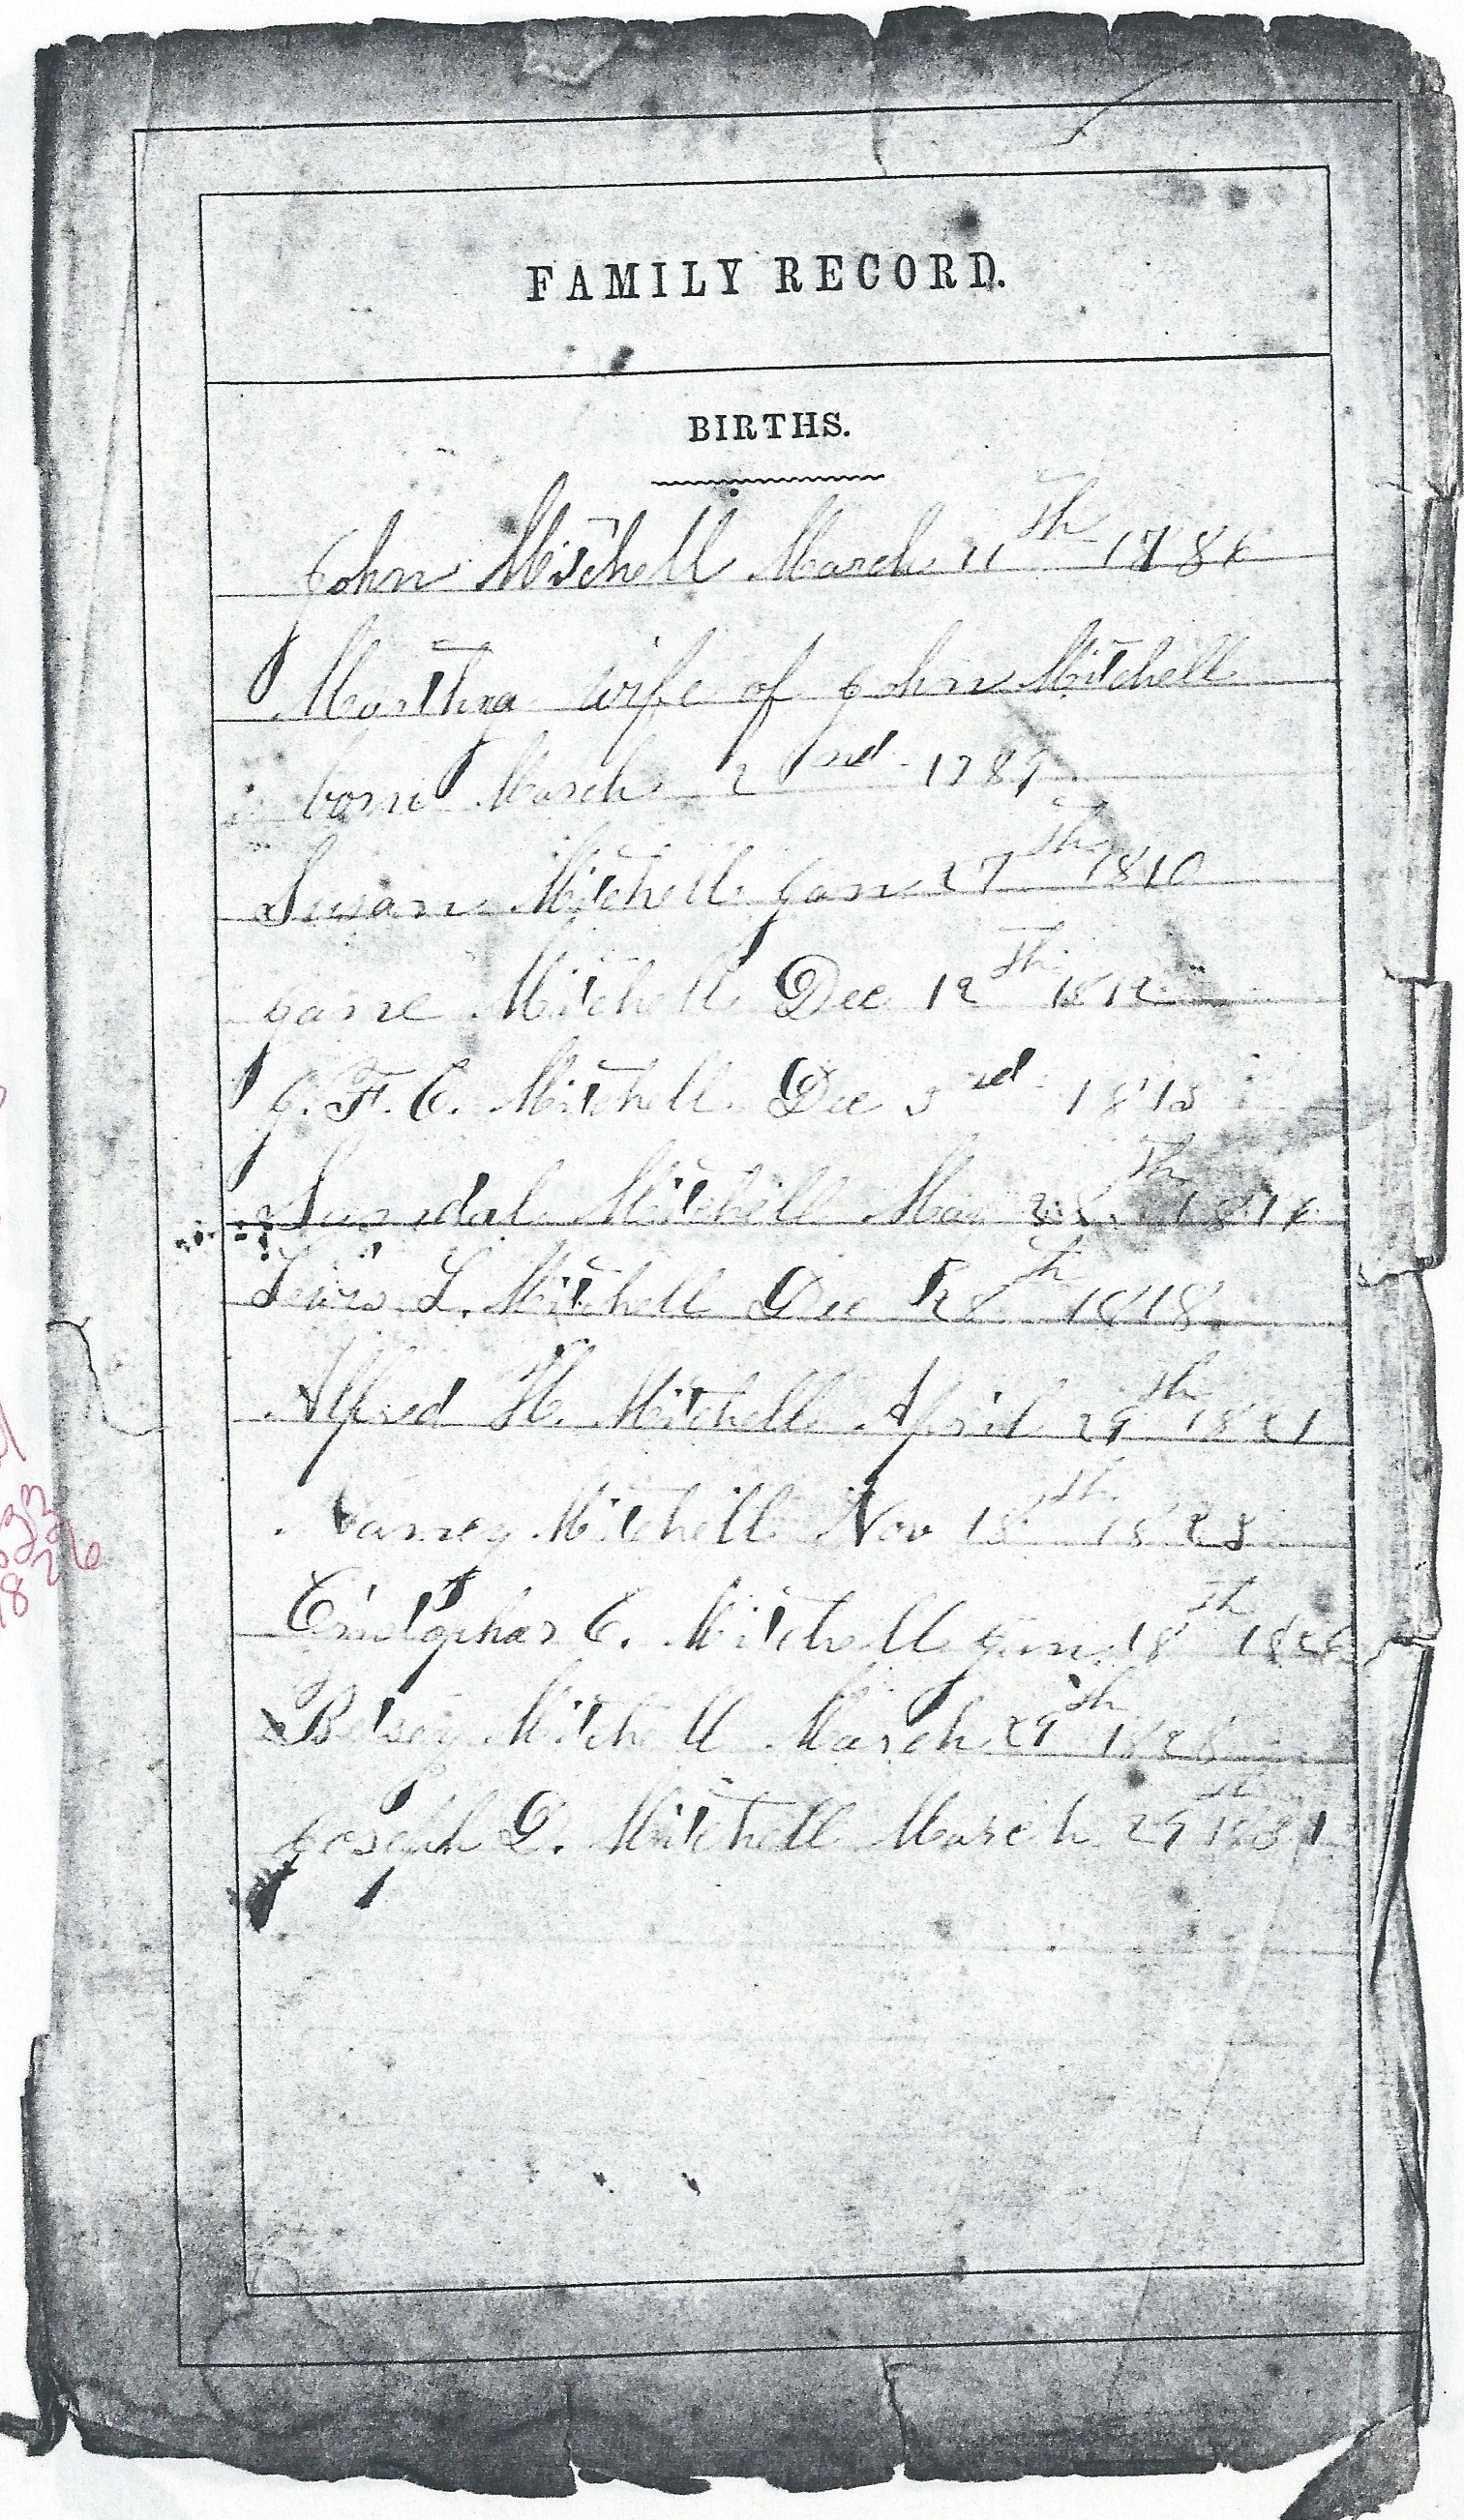 FAMILY RECORD.
BIRTHS.
John Mitchell March 11th
Martha wife of John Mitchell
born March 2nd 1789
Susan Mitchell Jan 27th 1810
Jane Mitchell Dec 12th 1812
J. F. C. Mitchell Dec 3rd
Mitchell May
Lewis L. Mitchell Dec 28th 1818
Alfred H. Mitchell April 29th 1821
Nancy Mitchell Nov 18th
C. Mitchell 18th
Betsey Mitchell March 29th 1828
Joseph D. Mitchell March 29th 1831
1826